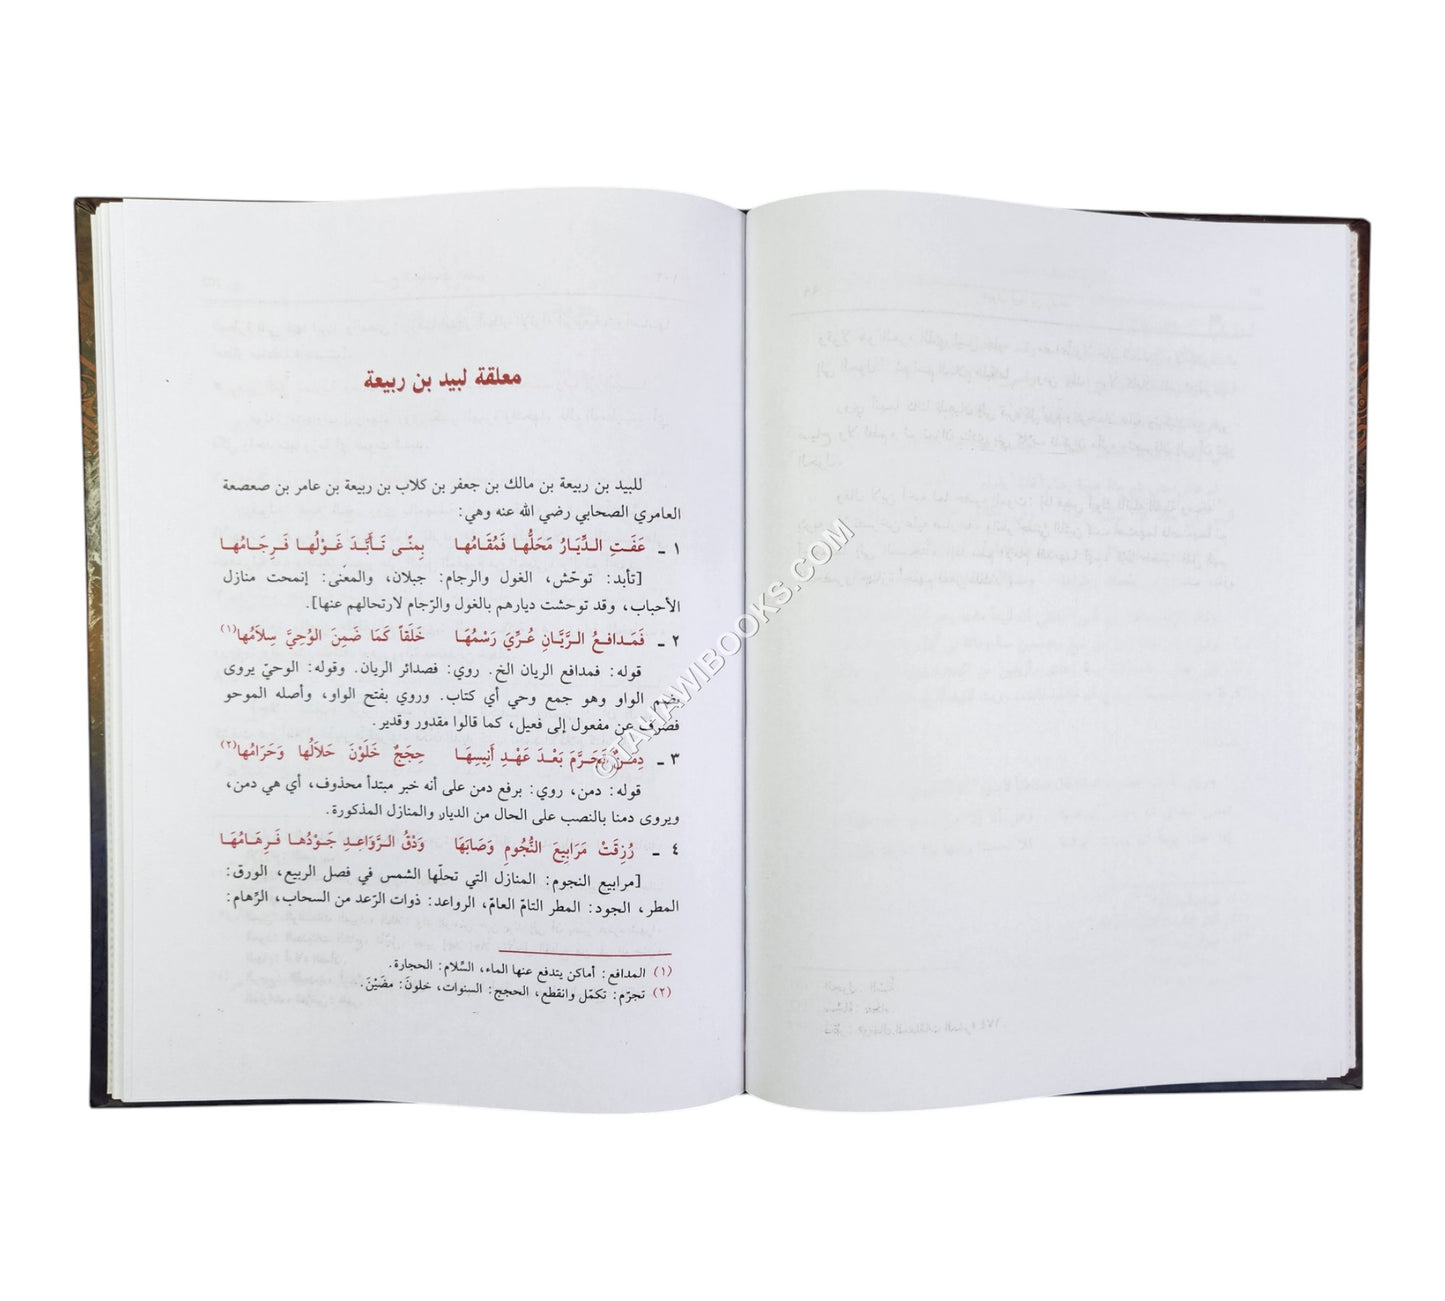 معلقة لبيد بن ربيعة
للبيد بن ربيعة بن مالك بن جعفر بن كلاب بن ربيعة بن عامر بن صعصعة
العامري الصحابي رضي الله عنه وهي:
١ ـ عَفَـتِ الـدِّيَـارُ مَحَلُّهـا فَمُقَامُهـا بِمِنًـى تَـأَبَّـدَ غَـوْلُهـا فَـرِجَـامُهـا
[تأبد: توحّش، الغول والرجام: جبلان، والمعنى: إنمحت منازل
الأحباب، وقد توحشت ديارهم بالغول والرّجام لارتحالهم عنها].
٢ ـ فَمَـدافـعُ الـرَّيَّـانِ عُـرِّيَ رَسْمُهَـا خَلَقاً كَمَا ضَمِنَ الوُحِيَّ سِلاَمُها(١)
قوله: فمدافع الريان الخ. روي: فصدائر الريان. وقوله: الوحيّ يروى
بضم الواو وهو جمع وحي أي كتاب. وروي بفتح الواو، وأصله الموحو
فصرف عن مفعول إلى فعيل، كما قالوا مقدور وقدير.
٣ ـ دِمَـنٌ تَجَـرَّمَ بَعْـدَ عَهْـدِ أَنِيسِهَـا حِجَجٌ خَلَوْنَ حَلاَلُها وَحَرَامُها(٢)
قوله: دمن، روي: برفع دمن على أنه خبر مبتدأ محذوف، أي هي دمن،
ويروى دمنا بالنصب على الحال من الديار والمنازل المذكورة.
٤ ـ رُزِقَتْ مَرَابِيعَ النُّجُومِ وَصَابَهَا وَدْقُ الـرَّوَاعِـدِ جَـوْدُهـا فَـرِهَـامُهَـا
[مرابيع النجوم: المنازل التي تحلّها الشمس في فصل الربيع، الورق:
المطر، الجود: المطر التامّ العامّ، الرواعد: ذوات الرّعد من السحاب، الرِّهام:
(١) المدافع: أماكن يتدفع عنها الماء، السِّلام: الحجارة.
(٢) تجرّم: تكمّل وانقطع، الحجج: السنوات، خلونَ: مضَيْنَ.
©TAHAWIBOOKS.COM